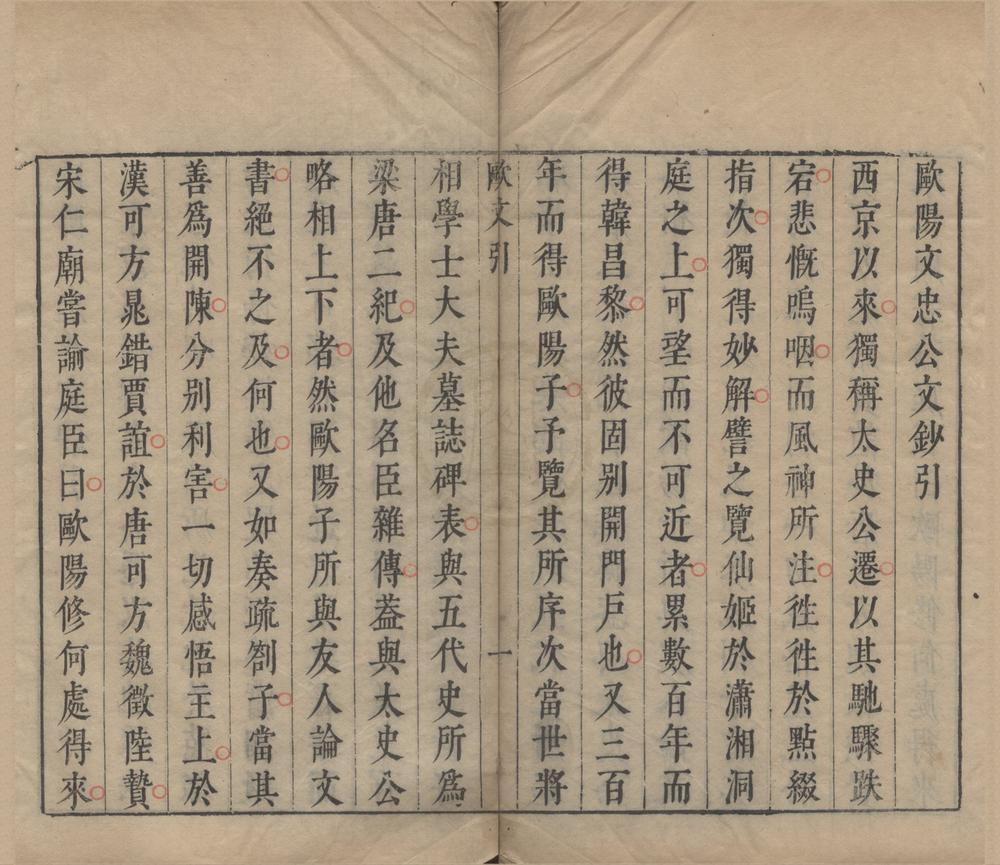 歐陽文忠公文鈔引
西京以來獨稱太史公遷以其馳驟跌
宕悲慨嗚咽而風神所注徃徃於點綴
指次獨得妙解譬之覽仙姬於瀟湘洞
庭之上可望而不可近者累數百年而
得韓昌黎然彼固别開門戶也又三百
年而得歐陽子予覽其所序次當世將
歐文引 一
相學士大夫墓誌碑表與五代史所爲
梁唐二紀及他名臣雜傳葢與太史公
略相上下者然歐陽子所與友人論文
書絕不之及何也又如奏疏劄子當其
善爲開陳分别利害一切感悟主上於
漢可方晁錯賈誼於唐可方魏徵陸贄
宋仁廟嘗諭庭臣曰歐陽修何處得來